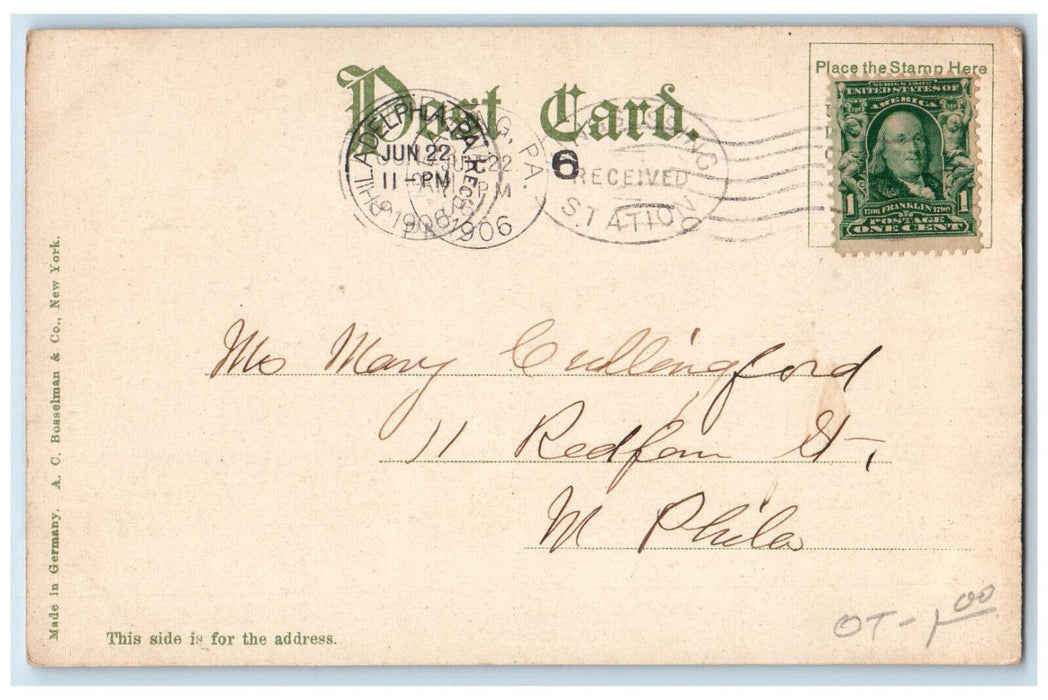 Post Card.
Place the Stamp Here
SERIES 1902
UNITED STATES OF
AMERICA
1706 FRANKLIN 1790
1 POSTAGE 1
ONE CENT
PHILADELPHIA, PA. REC'D
JUN 22
11-PM
1906
G, PA.
JUN 22
PM
1906
6
RECEIVED
STATION
Mary Cullingford
11 St,
Phila
Made in Germany. A. C. Bosselman & Co., New York.
This side is for the address.
OT-1.00